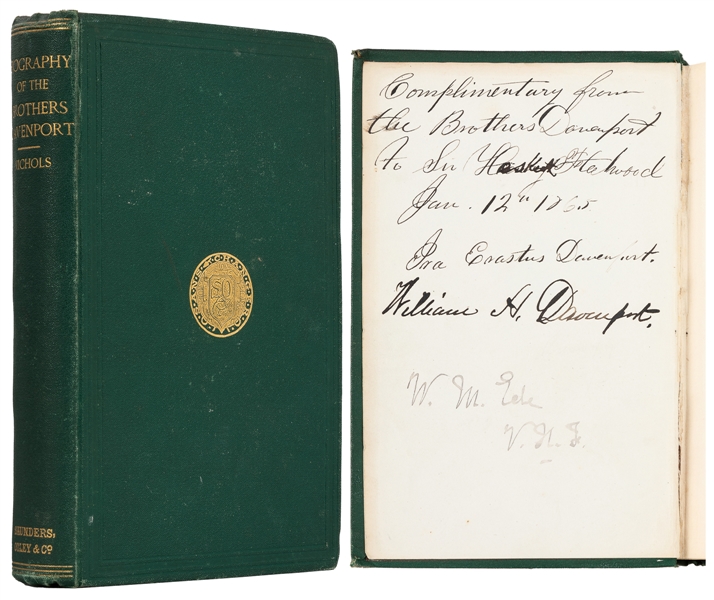 BIOGRAPHY
OF THE
BROTHERS
DAVENPORT
NICHOLS
SAUNDERS,
OTLEY & Co
Complimentary from
the Brothers Davenport
To Sir
Jan. 12th 1865
Ira Erastus Davenport.
William H. Davenport.
W. M.